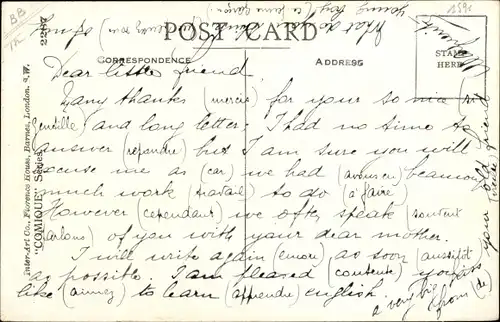 BB
POST CARD
CORRESPONDENCE
ADDRESS
STAMP
HERE
2287
"COMIQUE" Series.
Inter-Art Co., Florence House, Barnes, London, S.W.
Dear little friend
Many thanks (merci) for your so nice (si
gentille) and long letter; I had no time to
answer (répondre) but I am sure you will
excuse me as (car) we had (avons eu) beaucoup
much work (travail) to do (à faire)
However (cependant) we often speak (souvent
parlons) of you with your dear mother.
I will write again (encore) as soon (aussitôt
as possible. I am pleased (contente) you
like (aimez) to learn (apprendre) english.
a very big
from (de)
your old friend